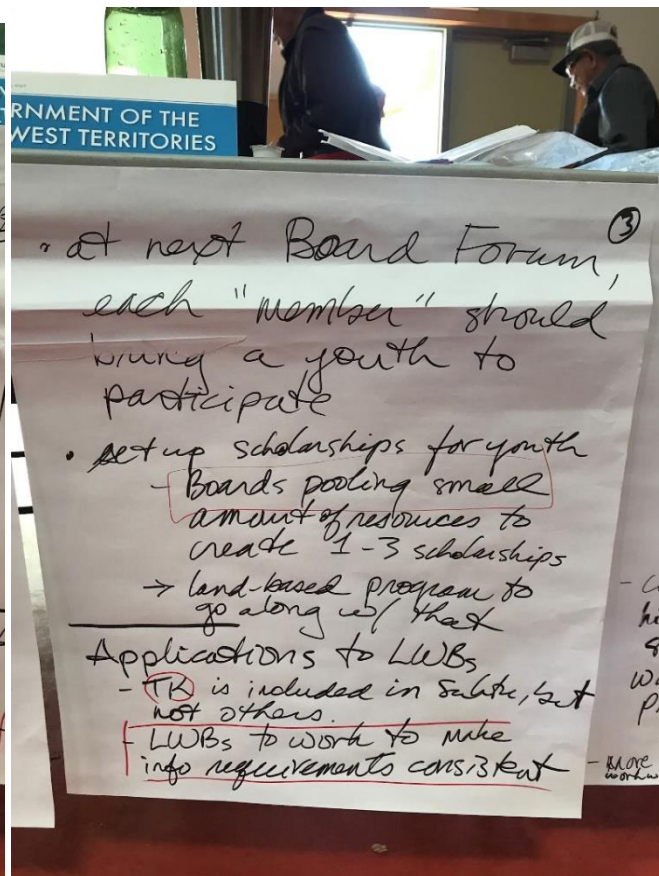 RNMENT OF THE
WEST TERRITORIES
3
• at next Board Forum,
each "member" should
bring a youth to
participate
• set up scholarships for youth
- Boards pooling small
amount of resources to
create 1-3 scholarships
→ land-based program to
go along w/ that
Applications to LWBs
- TK is included in Sahtu, but
not others.
- LWBs to work to make
info requirements consistent
- more